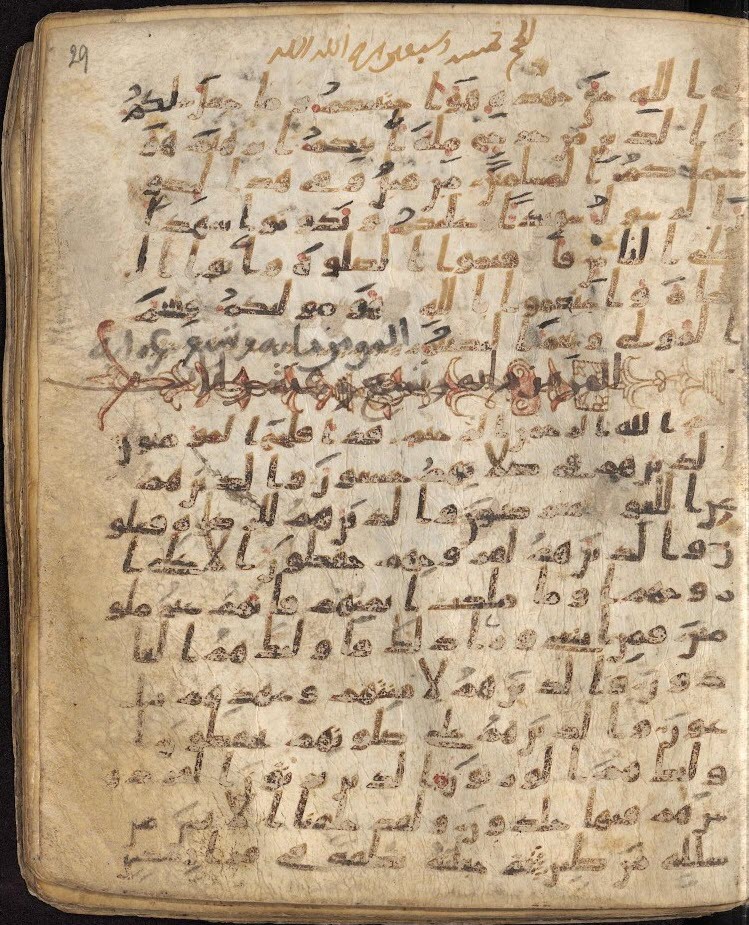 فى الله حق جهده هو اجتبكم وما جعل علىكم
فى الدين من حرج مله ابيكم ابرهيم هو
سميكم المسلمين من قبل وفى هذا ليكو
ن الرسول شهيدا عليكم وتكونوا شهدا
على الناس فاقيموا الصلوة واتوا ا
لزكاة واعتصموا بالله هو موليكم فنعم
المولى ونعم النصير
المومنون مايه وتسع عشره ايه
المومنون مايه وتسع عشره ايه
بسم الله الرحمن الرحيم قد افلح المومنون
الذين هم فى صلاتهم خشعون والذين هم
عن اللغو معرضون والذين هم للزكوة فعلو
ن والذين هم لفروجهم حفظون الا على ا
زوجهم او ما ملكت ايمنهم فانهم غير ملو
مين فمن ابتغى ورا ذلك فاوليك هم العا
دون والذين هم لامنتهم وعهدهم ر
عون والذين هم على صلوتهم يحفظون ا
وليك هم الورثون الذين يرثون الفردو
س هم فيها خلدون ولقد خلقنا الانسن من
سلله من طين ثم جعلنه نطفه فى قرار مكين
29